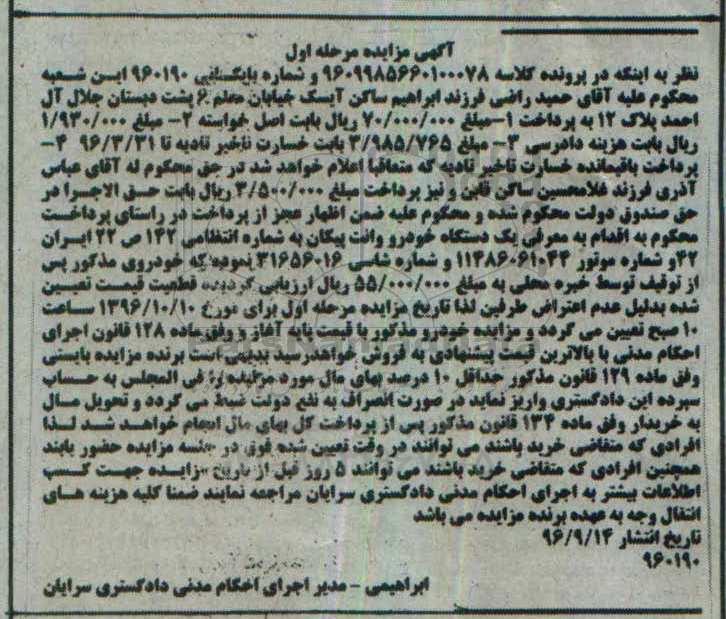 آگهی مزایده مرحله اول
نظر به اینکه در پرونده کلاسه ۹۶۰۹۹۸۵۶۶۰۱۰۰۰۷۸ و شماره بایگانی ۹۶۰۱۹۰ این شعبه
محکوم علیه آقای حمید راضی فرزند ابراهیم ساکن آیسک خیابان معلم ۶ پشت دبستان جلال آل
احمد پلاک ۱۲ به پرداخت ۱-مبلغ ۷۰/۰۰۰/۰۰۰ ریال بابت اصل خواسته ۲- مبلغ ۱/۹۳۰/۰۰۰
ریال بابت هزینه دادرسی ۳- مبلغ ۳/۹۸۵/۷۶۵ بابت خسارت تاخیر تادیه تا ۹۶/۳/۳۱ ۴-
پرداخت باقیمانده خسارت تاخیر تادیه که متعاقبا اعلام خواهد شد در حق محکوم له آقای عباس
آذری فرزند غلامحسین ساکن قاین و نیز پرداخت مبلغ ۳/۵۰۰/۰۰۰ ریال بابت حق الاجرا در
حق صندوق دولت محکوم شده و محکوم علیه ضمن اظهار عجز از پرداخت در راستای پرداخت
محکوم به اقدام به معرفی یک دستگاه خودرو وانت پیکان به شماره انتظامی ۱۴۲ ص ۲۲ ایران
۴۲و شماره موتور ۱۱۲۸۶۰۶۱۰۴۴ و شماره شاسی ۳۱۶۵۶۰۱۶ نموده که خودروی مذکور پس
از توقیف توسط خبره محلی به مبلغ ۵۵/۰۰۰/۰۰۰ ریال ارزیابی گردیده قطعیت قیمت تعیین
شده بدلیل عدم اعتراض طرفین لذا تاریخ مزایده مرحله اول برای مورخ ۱۳۹۶/۱۰/۱۰ ساعت
۱۰ صبح تعیین می گردد و مزایده خودرو مذکور با قیمت پایه آغاز و وفق ماده ۱۲۸ قانون اجرای
احکام مدنی با بالاترین قیمت پیشنهادی به فروش خواهدرسید بدیهی است برنده مزایده بایستی
وفق ماده ۱۲۹ قانون مذکور حداقل ۱۰ درصد بهای مال مورد مزایده را فی المجلس به حساب
سپرده این دادگستری واریز نماید در صورت انصراف به نفع دولت ضبط می گردد و تحویل مال
به خریدار وفق ماده ۱۳۴ قانون مذکور پس از پرداخت کل بهای مال انجام خواهد شد لذا
افرادی که متقاضی خرید باشند می توانند در وقت تعیین شده فوق در جلسه مزایده حضور یابند
همچنین افرادی که متقاضی خرید باشند می توانند ۵ روز قبل از تاریخ مزایده جهت کسب
اطلاعات بیشتر به اجرای احکام مدنی دادگستری سرایان مراجعه نمایند ضمنا کلیه هزینه های
انتقال وجه به عهده برنده مزایده می باشد
تاریخ انتشار ۹۶/۹/۱۴
۹۶۰۱۹۰
ابراهیمی - مدیر اجرای احکام مدنی دادگستری سرایان